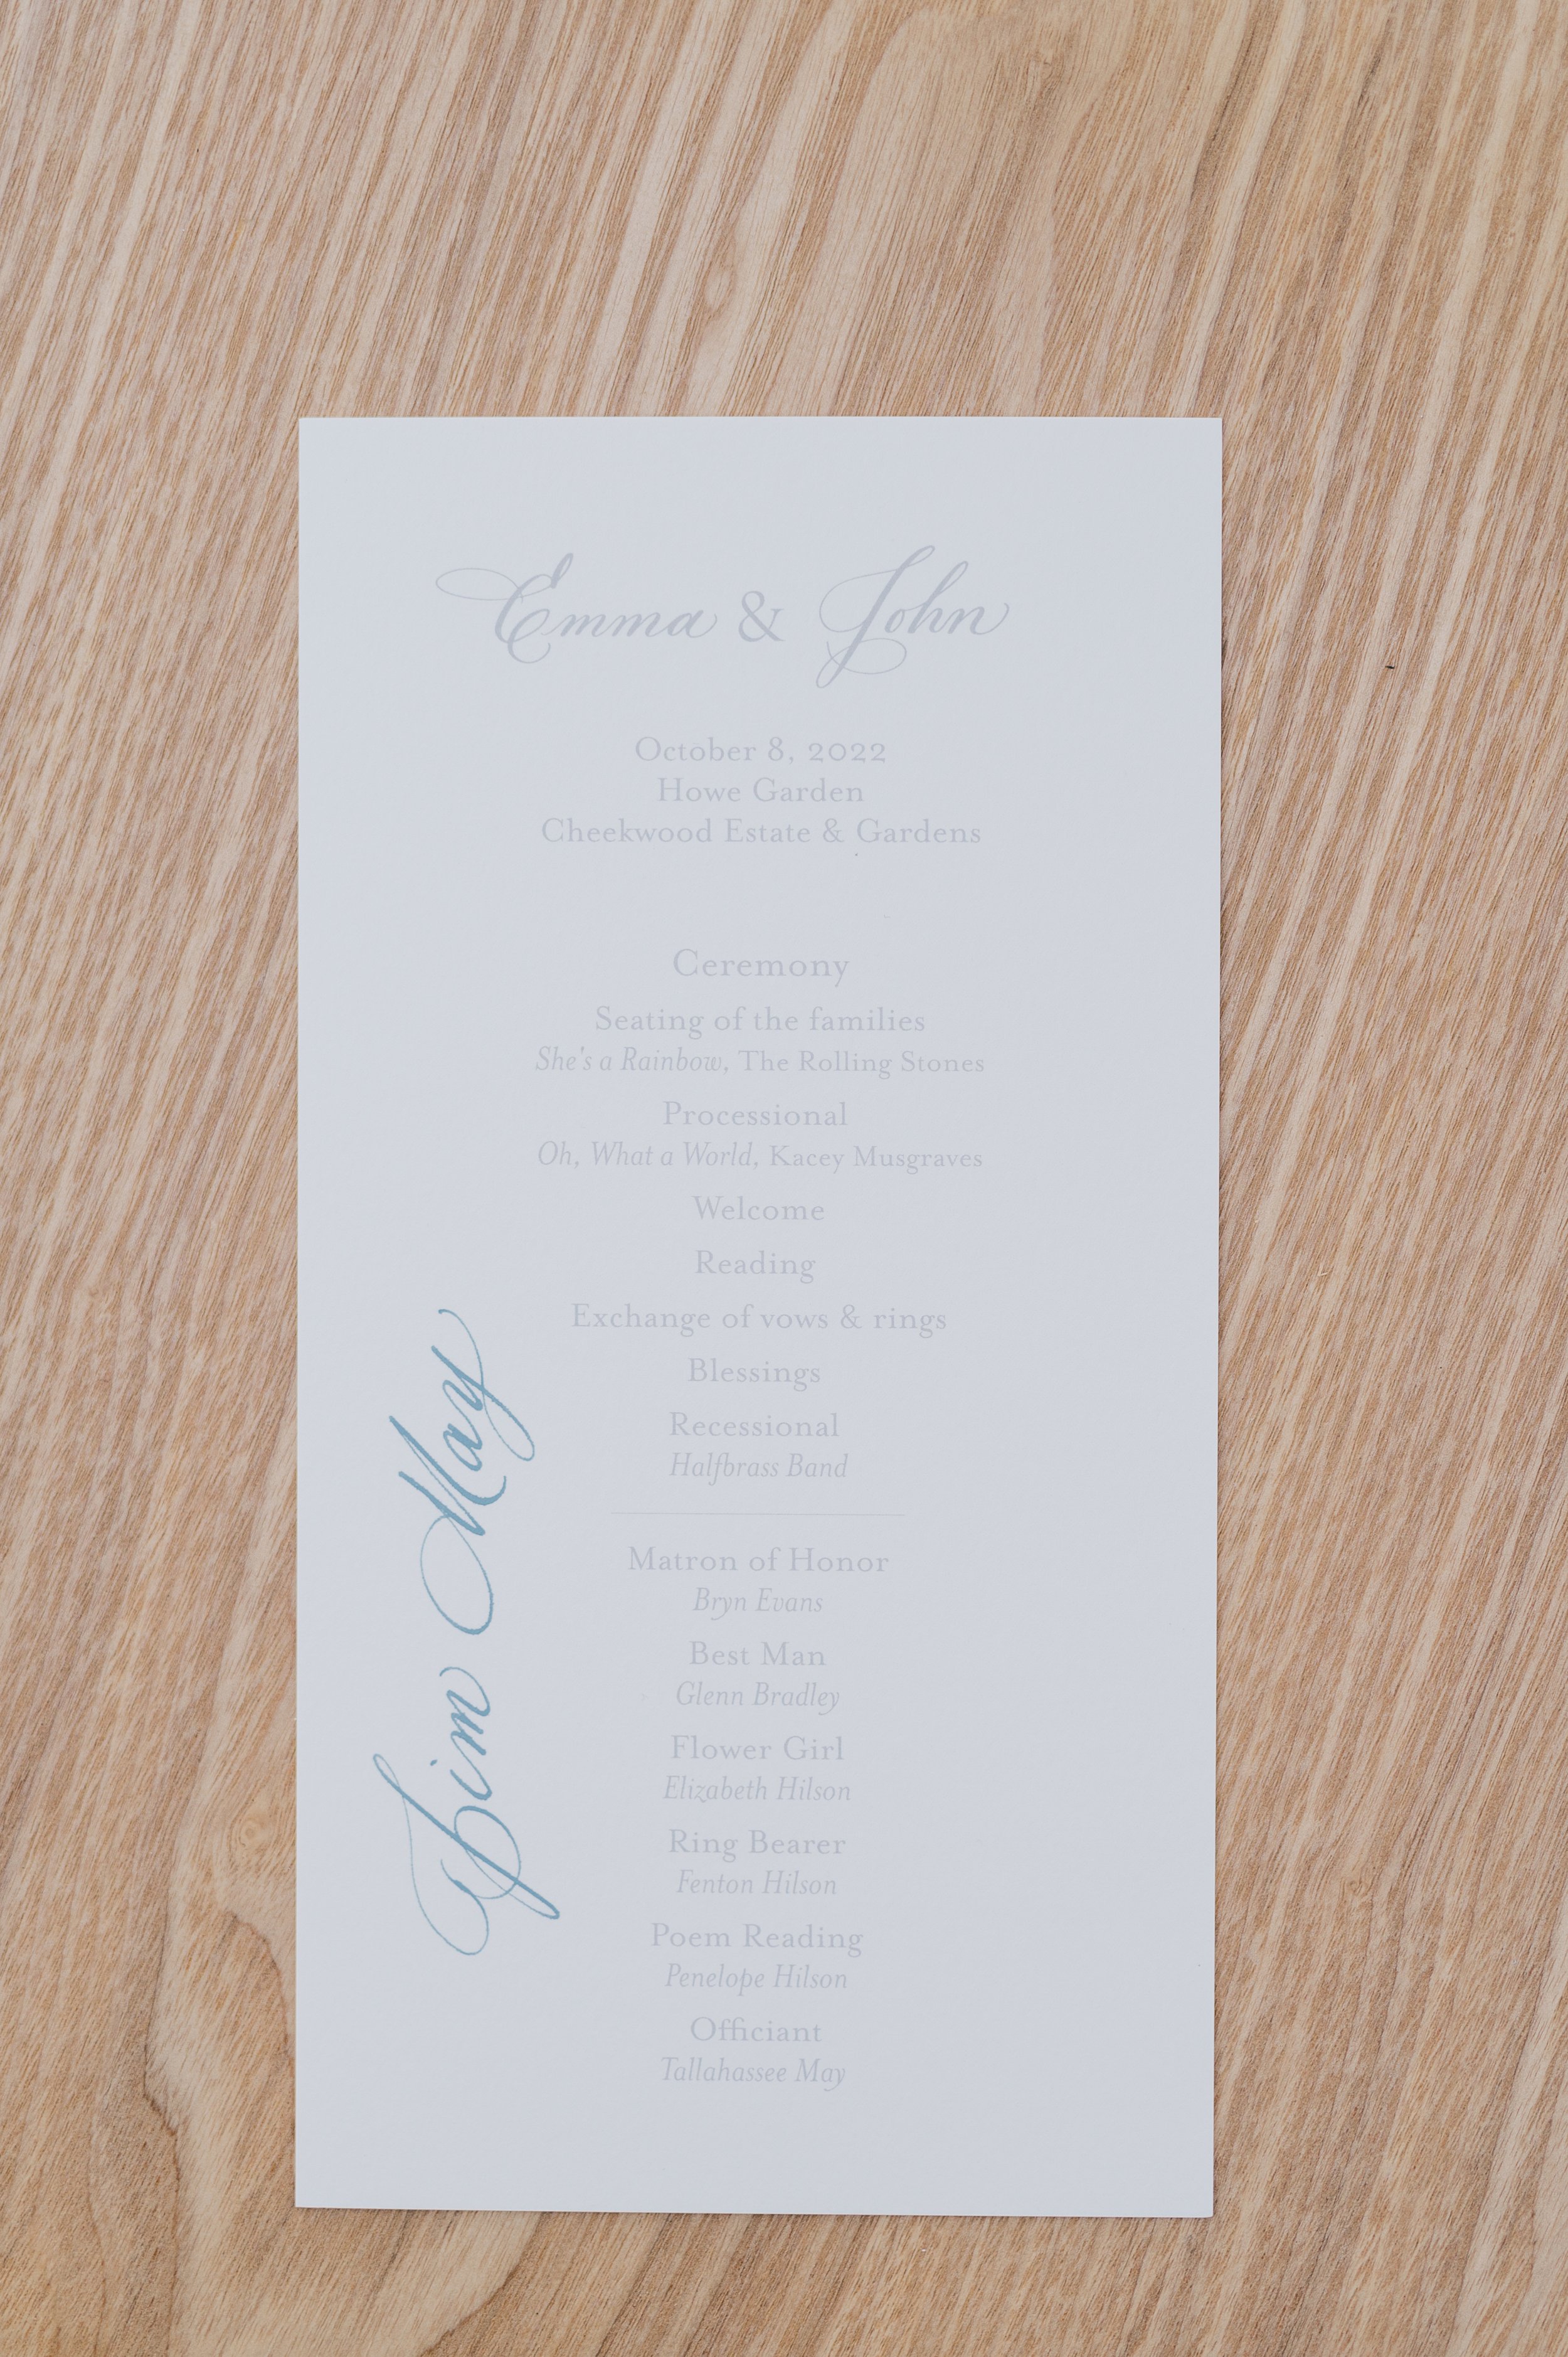 Emma & John
October 8, 2022
Howe Garden
Cheekwood Estate & Gardens
Ceremony
Seating of the families
She's a Rainbow, The Rolling Stones
Processional
Oh, What a World, Kacey Musgraves
Welcome
Reading
Exchange of vows & rings
Blessings
Recessional
Halfbrass Band
Matron of Honor
Bryn Evans
Best Man
Glenn Bradley
Flower Girl
Elizabeth Hilson
Ring Bearer
Fenton Hilson
Poem Reading
Penelope Hilson
Officiant
Tallahassee May
May